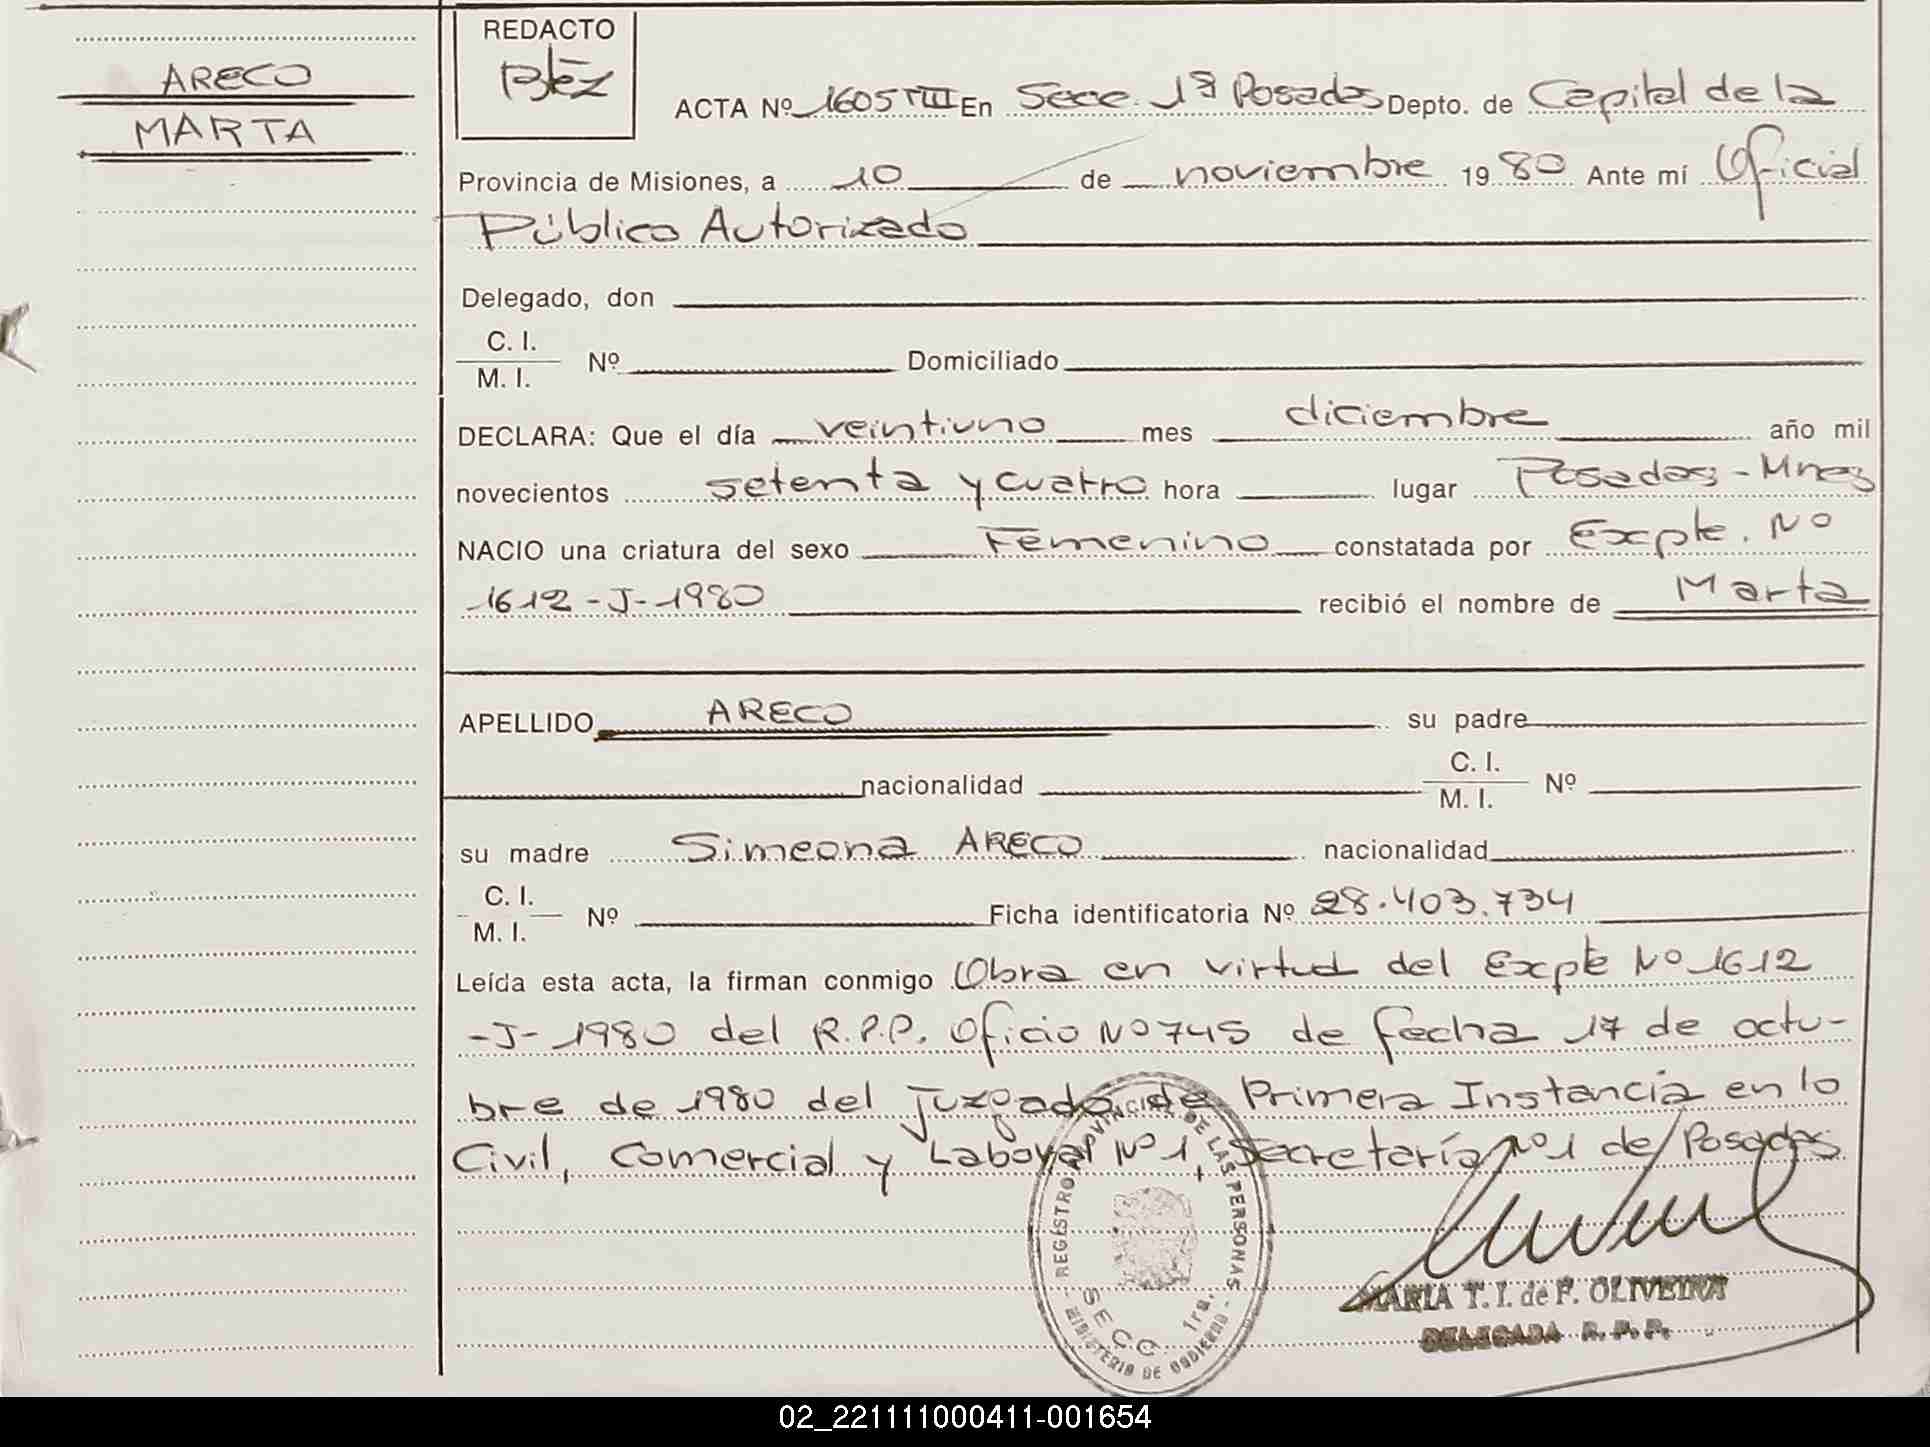 ARECO
MARTA
REDACTO
ACTA Nº 1605 TIII En Secc. 1ª Posadas Depto. de Capital de la
Provincia de Misiones, a 10 de noviembre 1980 Ante mí Oficial
Público Autorizado
Delegado, don
C. I.
M. I. Nº Domiciliado
DECLARA: Que el día veintiuno mes diciembre año mil
novecientos setenta y cuatro hora lugar Posadas - Mnes
NACIO una criatura del sexo Femenino constatada por Expte. Nº
1612 - J - 1980 recibió el nombre de Marta
APELLIDO ARECO su padre
nacionalidad C. I. M. I. Nº
su madre Simeona ARECO nacionalidad
C. I.
M. I. Nº Ficha identificatoria Nº 28.403.734
Leída esta acta, la firman conmigo Obra en virtud del Expte Nº 1612
-J- 1980 del R.P.P. Oficio Nº 745 de fecha 17 de octu-
bre de 1980 del Juzgado de Primera Instancia en lo
Civil, Comercial y Laboral Nº 1, Secretaría Nº 1 de Posadas
REGISTRO PROVINCIAL DE LAS PERSONAS
SECC. 1ra.
MINISTERIO DE GOBIERNO
MARIA T. I. de F. OLIVEIRA
DELEGADA R. P. P.
02_221111000411-001654